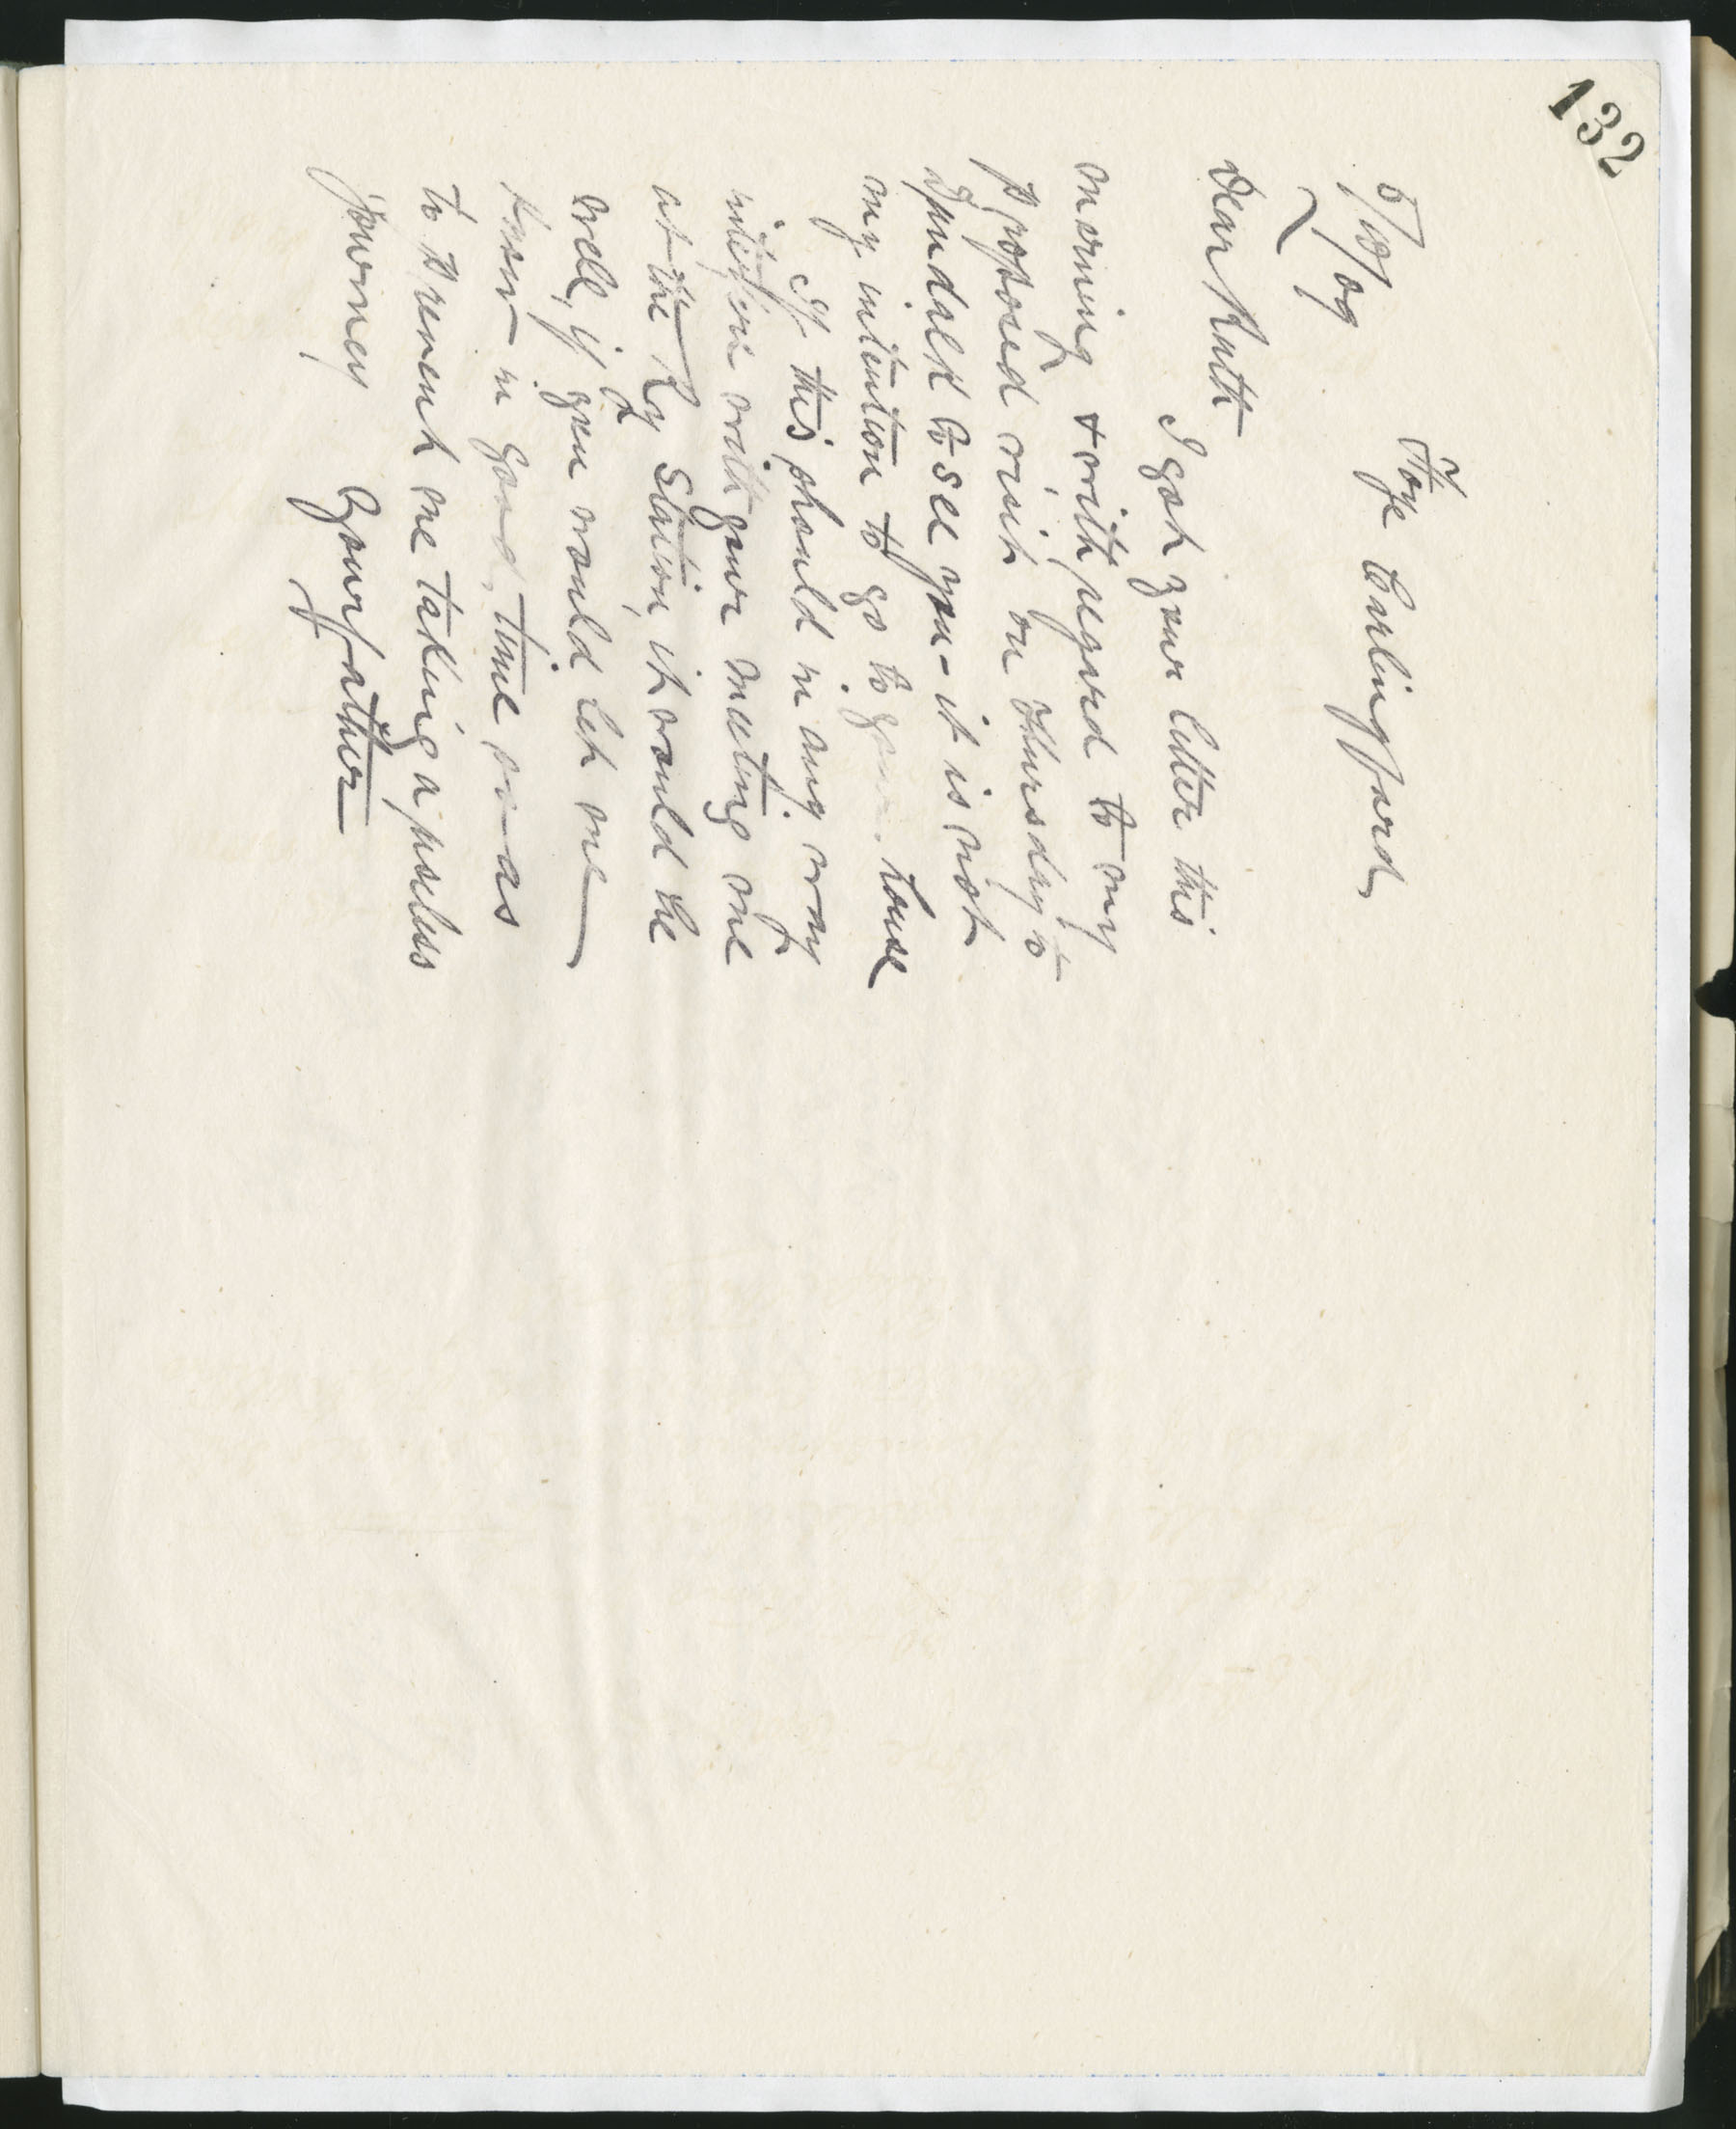 132
Foye Carlingford
5/8/09
Dear Ruth
I got your letter this
morning & with regard to my
proposed visit on thursday to
Dundalk to see you - it is not
my intention to go to your house
If this should in any way
interfere with your meeting me
at the Ry Station, it would be
well, if you would let me
know in good time so as
to prevent me taking a useless
journey
Your father